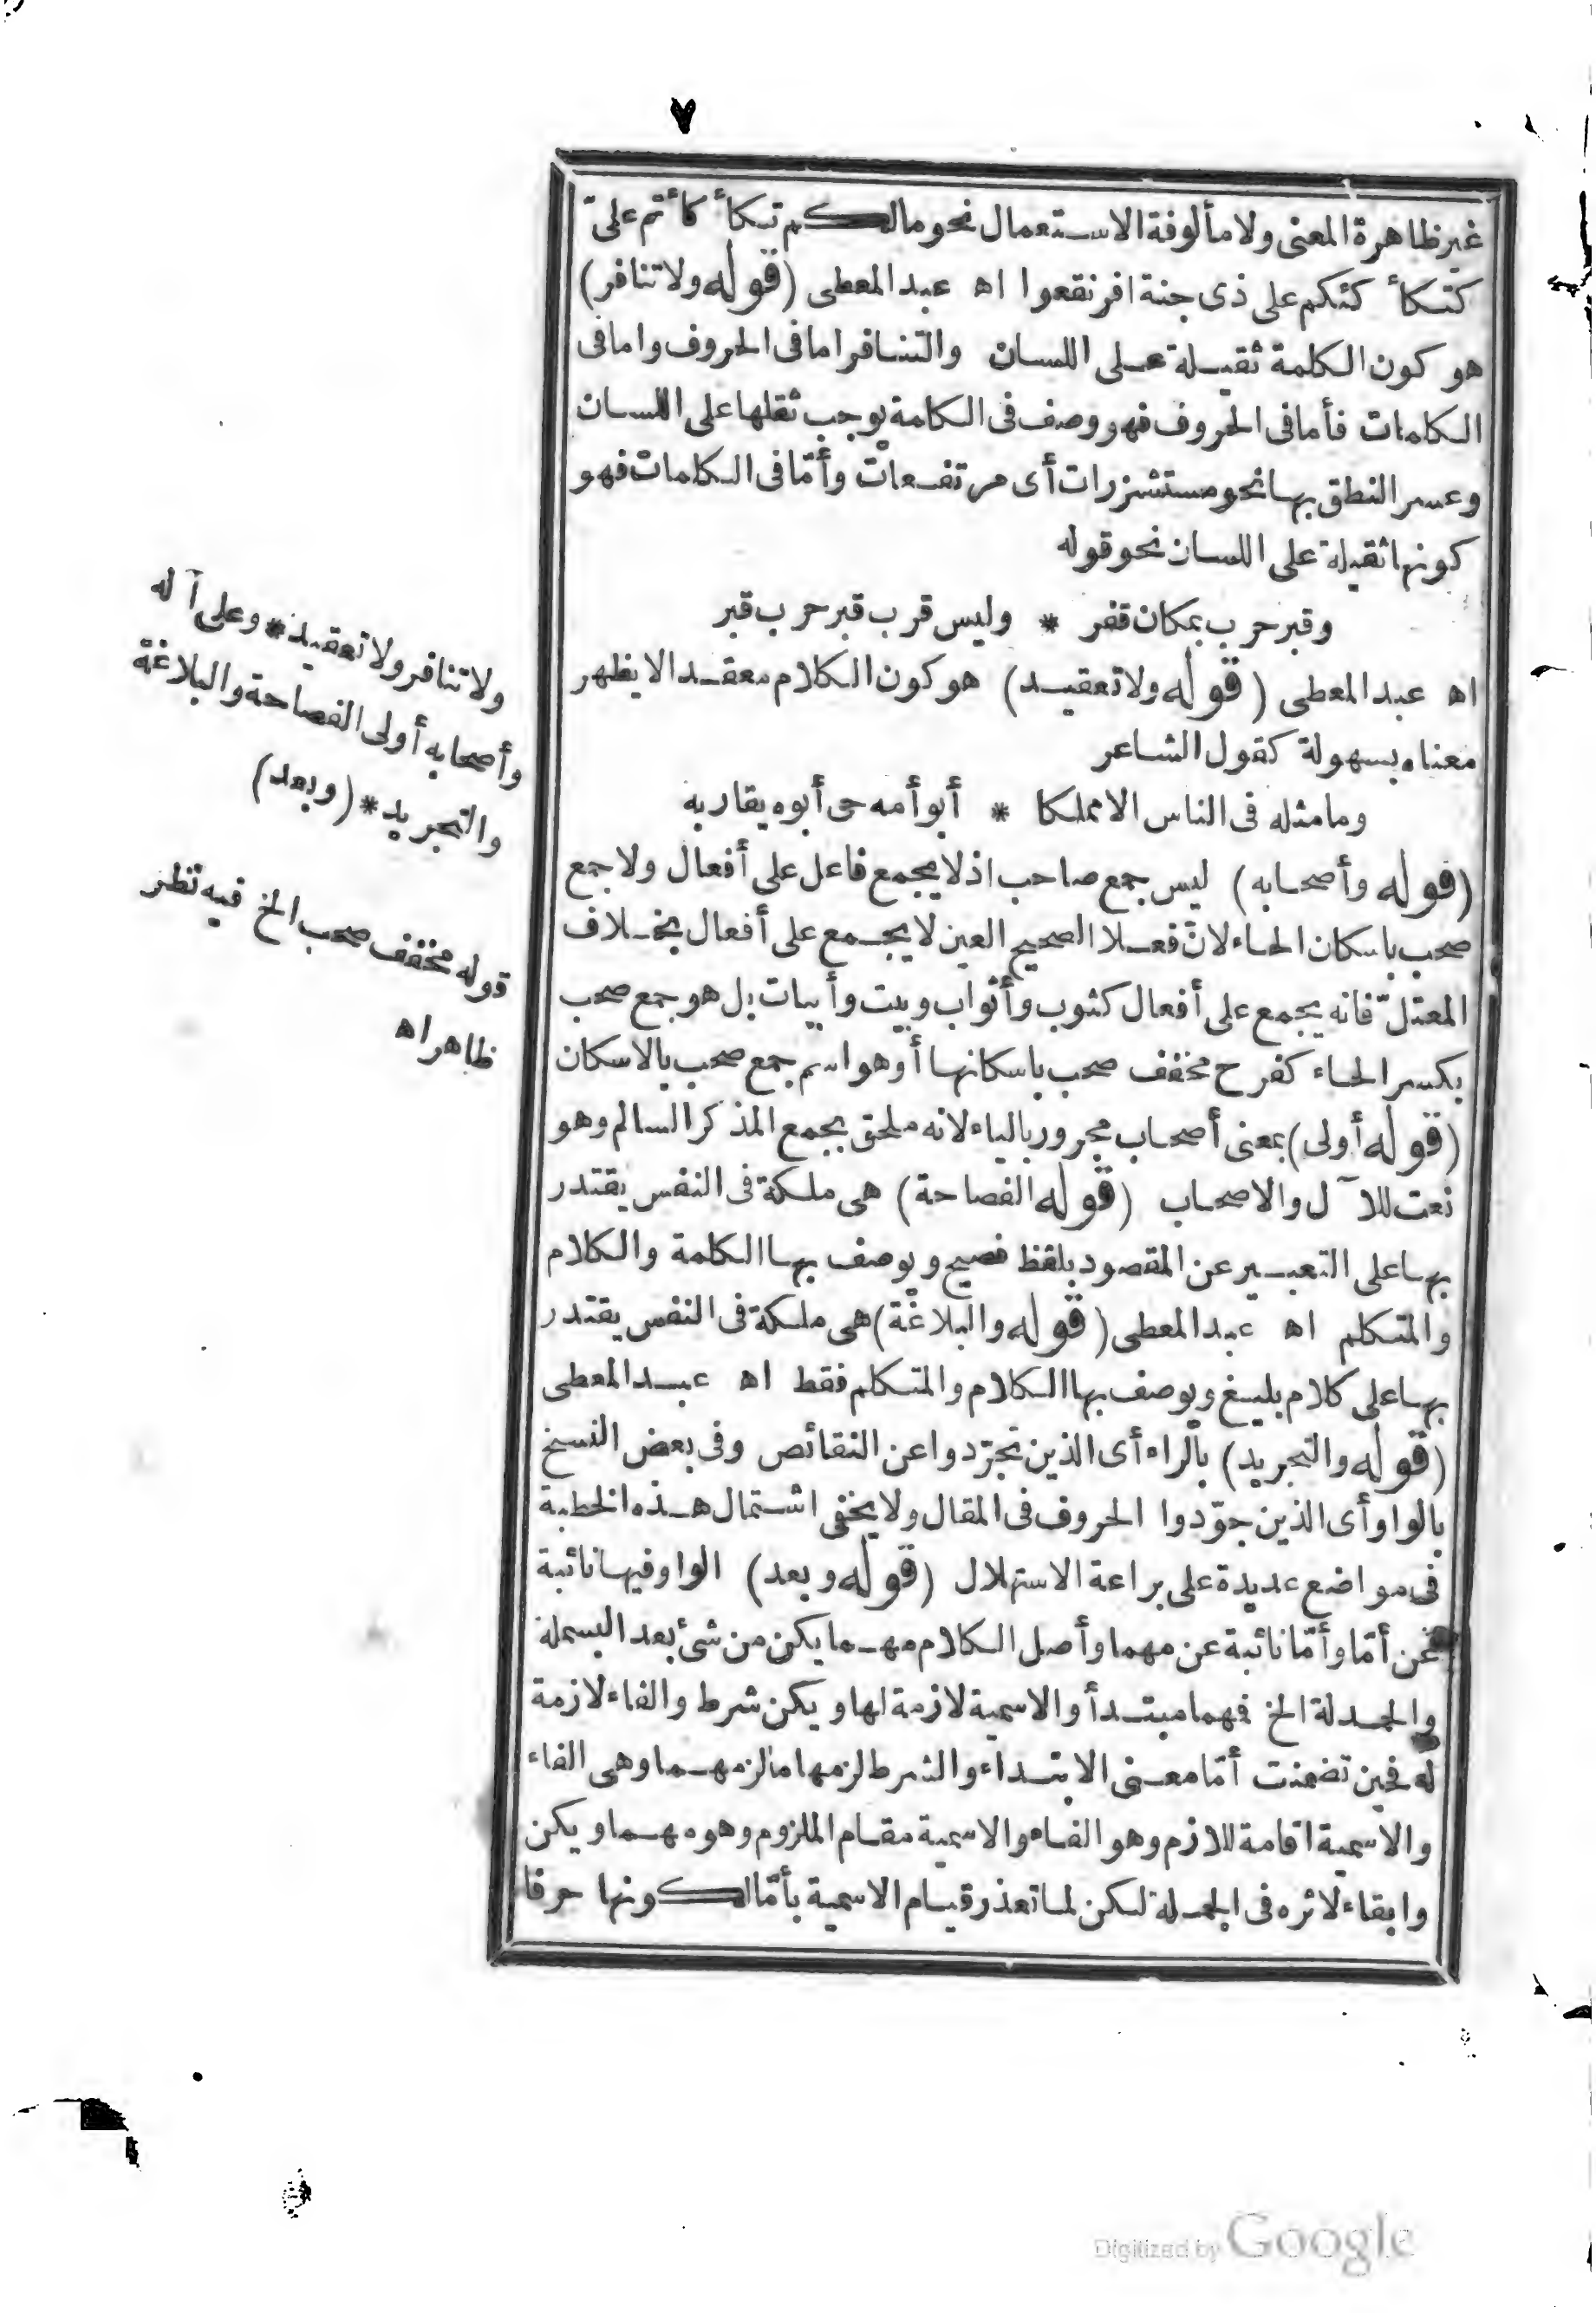 ٧
غير ظاهرة المعنى ولا مألوفة الاستعمال نحو مالكم تكأ كأتم علىّ
كتكأ كئكم على ذى جنة افرنقعوا اه عبد المعطى (قوله ولا تنافر)
هو كون الكلمة ثقيلة على اللسان والتنافر اما فى الحروف واما فى
الكلمات فأما فى الحروف فهو وصف فى الكلمة يوجب ثقلها على اللسان
وعسر النطق بها نحو مستشزرات أى مرتفعات وأمّا فى الكلمات فهو
كونها ثقيلة على اللسان نحو قوله
وقبر حرب بمكان قفر * وليس قرب قبر حرب قبر
اه عبد المعطى (قوله ولا تعقيد) هو كون الكلام معقدا لا يظهر
معناه بسهولة كقول الشاعر
وما مثله فى الناس الا مملكا * أبو أمه حى أبوه يقاربه
(قوله وأصحابه) ليس جمع صاحب اذ لا يجمع فاعل على أفعال ولا جمع
صحب باسكان الحاء لانّ فعلا الصحيح العين لا يجمع على أفعال بخلاف
المعتلّ فانه يجمع على أفعال كثوب وأثواب وبيت وأبيات بل هو جمع صحب
بكسر الحاء كفرح مخفف صحب باسكانها أو هو اسم جمع صحب بالاسكان
(قوله أولى) بمعنى أصحاب مجرور بالياء لانه ملحق بجمع المذكر السالم وهو
نعت للآل والاصحاب (قوله الفصاحة) هى ملكة فى النفس يقتدر
بها على التعبير عن المقصود بلفظ فصيح ويوصف بها الكلمة والكلام
والمتكلم اه عبد المعطى (قوله والبلاغة) هى ملكة فى النفس يقتدر
بها على كلام بليغ ويوصف بها الكلام والمتكلم فقط اه عبد المعطى
(قوله والتجريد) بالراء أى الذين تجرّدوا عن النقائص وفى بعض النسخ
بالواو أى الذين جوّدوا الحروف فى المقال ولا يخفى اشتمال هذه الخطبة
فى مواضع عديدة على براعة الاستهلال (قوله وبعد) الواو فيها نائبة
عن أمّا وأمّا نائبة عن مهما وأصل الكلام مهما يكن من شئ بعد البسملة
والحمدلة الخ فهما مبتدأ والاسمية لازمة لها ويكن شرط والفاء لازمة
له فحين تضمنت أمّا معنى الابتداء والشرط لزمها ما لزمهما وهى الفاء
والاسمية اقامة للازم وهو الفاء والاسمية مقام الملزوم وهو مهما ويكن
وابقاء لاثره فى الجملة لكن لما تعذر قيام الاسمية بأمّا لكونها حرفا
ولا تنافر ولا تعقيد * وعلى آله
وأصحابه أولى الفصاحة والبلاغة
والتجريد * (وبعد)
قوله مخفف صحب الخ فيه نظر
ظاهر اه
Digitized by Google